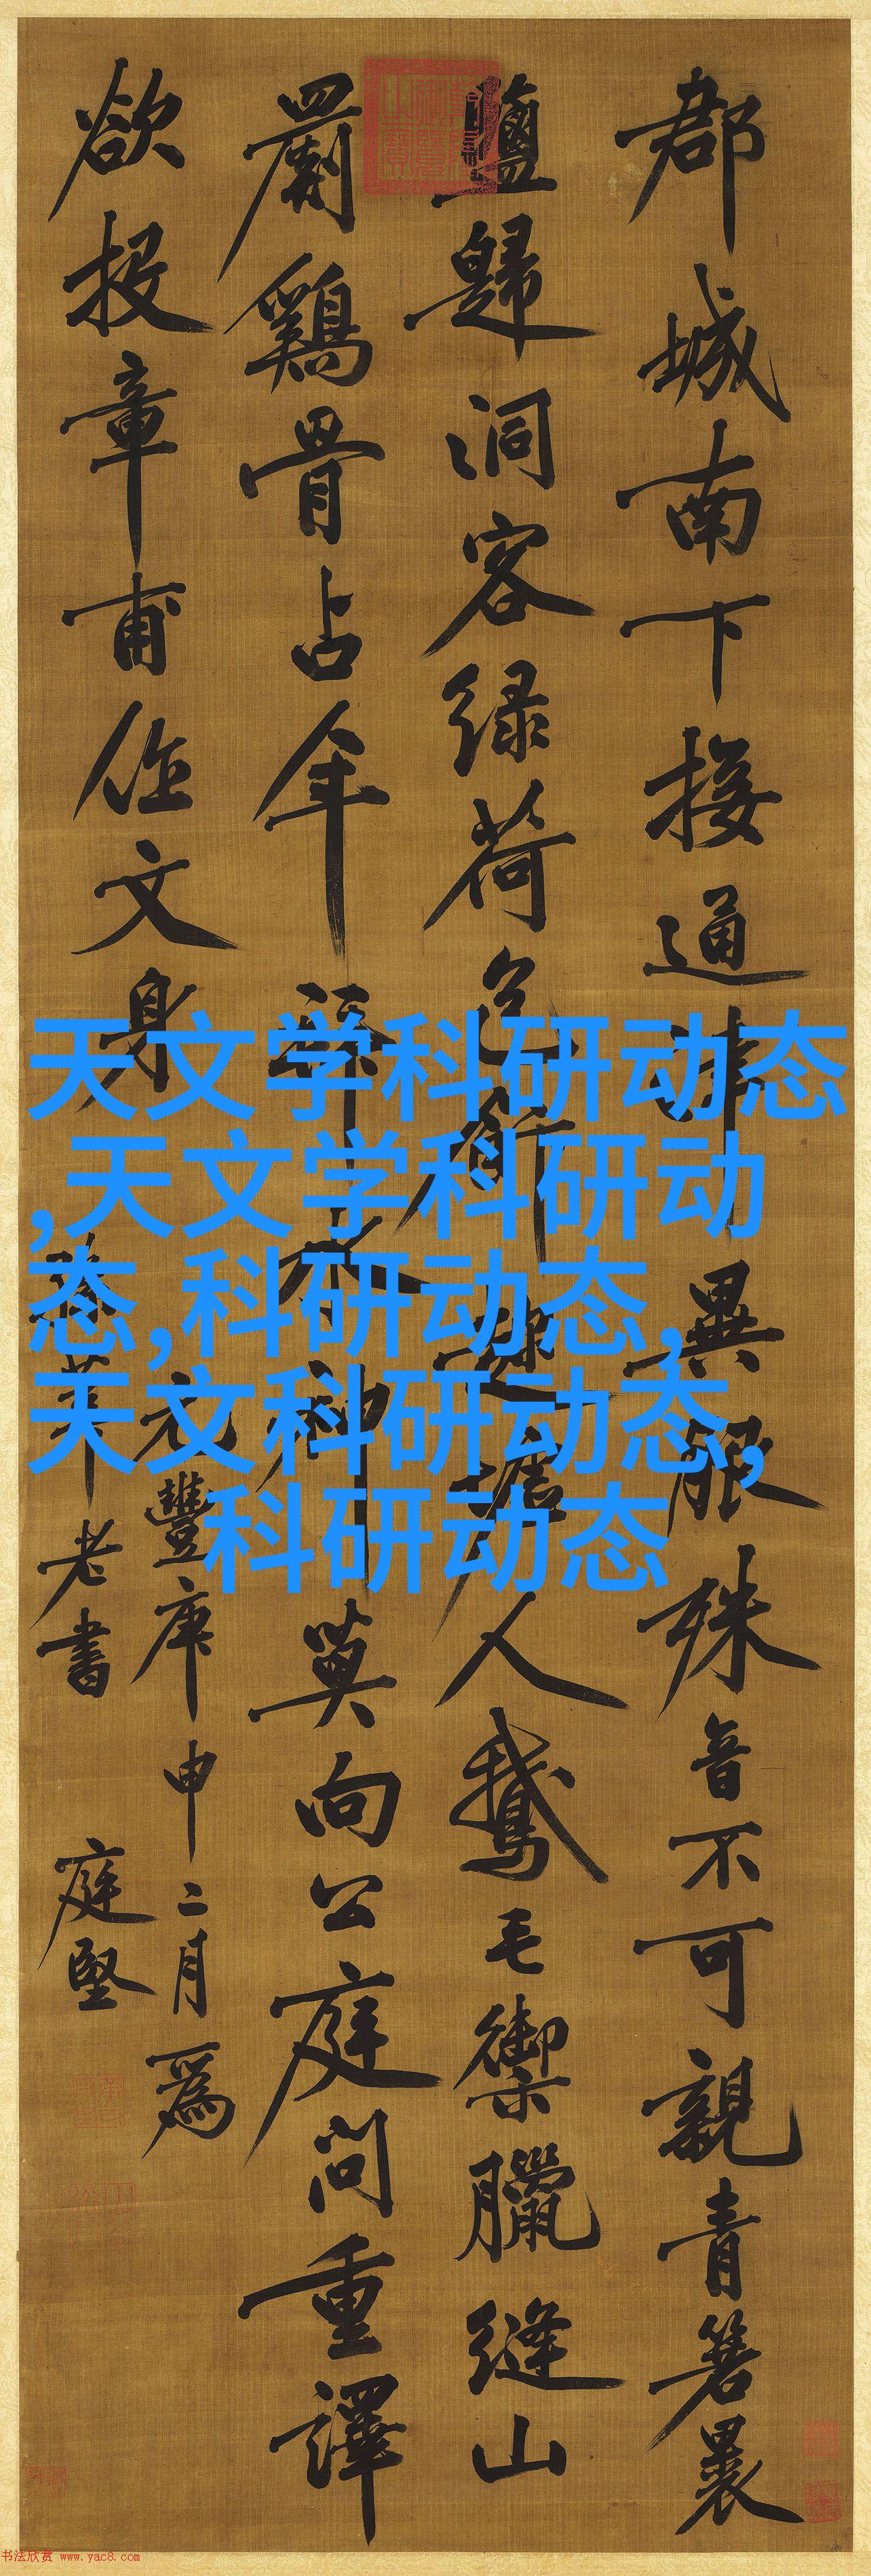 郡城南下接通津異服殊音不可親青箬裹
鹽歸洞客緑荷包人鵝毛御臘縫山
罽鷄骨占年神莫向公庭問重譯
欲投章甫作文身
元豐庚申二月爲
老書
庭堅
天文学科研动态
,天文学科研动
态,科研动态,
天文科研动态,
科研动态
书法欣赏 www.yac8.com